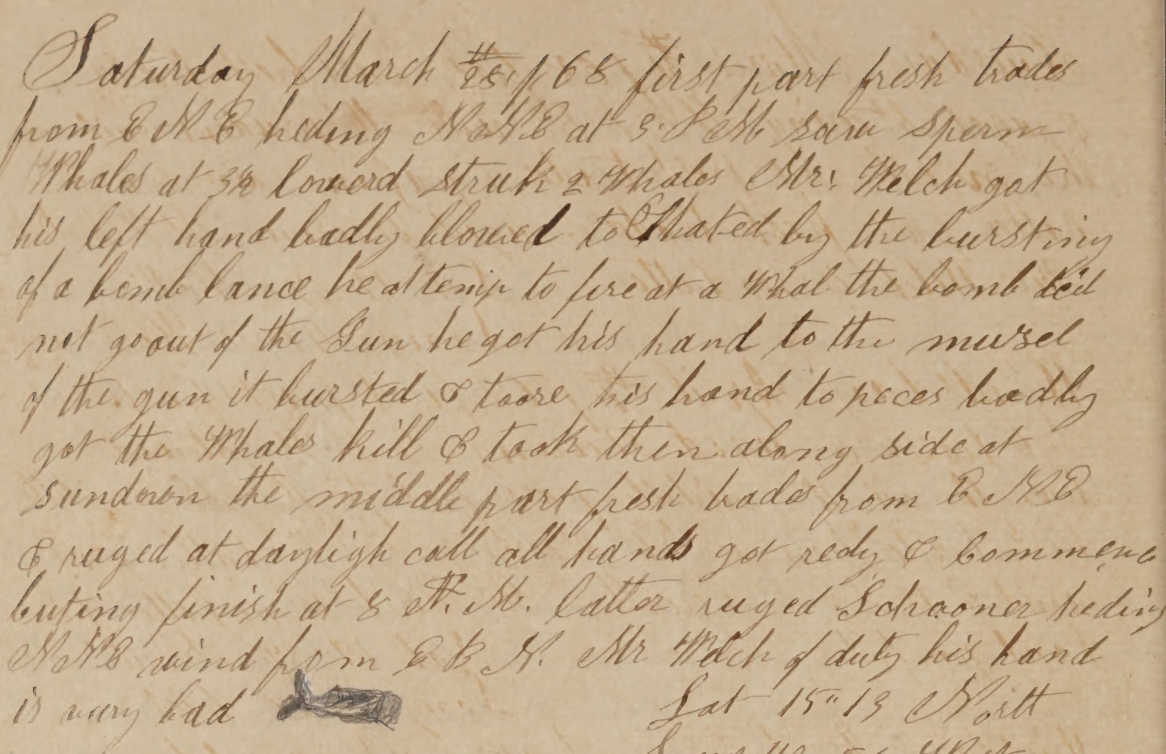 Saturday March 28th/68 first part fresh trades
from E N E heding N N E at 3. P M saw Sperm
Whales at 3½ lowerd struk 2 Whales Mr. Welch got
his left hand badly blowed to by the bursting
of a bomb lance he attemp to fire at a Whal the bomb did
not go out of the Gun he got his hand to the muzel
of the gun it bursted & toore his hand to peces badly
got the Whales kill & took then along side at
sundown the middle part fresh trades from E N E
& ruged at dayligh call all hands got redy & Commenc
Cuting finish at 8 A. M. latter ruged Schooner heding
N N E wind from E B N. Mr Welch of duty his hand
is very bad
Lat 15" 19 North